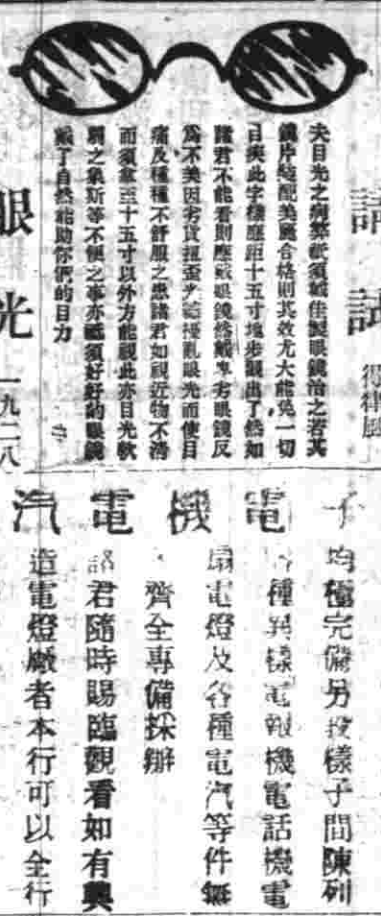 請試
得律風
夫目光之病祗須佳製眼鏡治之若其
鏡片裝配美麗合格則其效尤大能免一切
目疾此字樣應距十五寸地步顯出了然如
諸君不能看則應戴眼鏡然戴劣眼鏡反
為不美因劣貨擾亂眼光而使目
痛及種種不舒服之患諸君如視近物不清
而須拿至十五寸以外方能視此亦目光軟
弱之象斯等不便之事亦祗須好好的眼鏡
戴了自然能助你們的目力
眼光
一九二八
電機電汽
均極完備另設樣子間陳列
種異樣電報機電話機電
扇電燈及各種電汽等件無
齊全專備採辦
諸君隨時賜臨觀看如有興
造電燈廠者本行可以全行